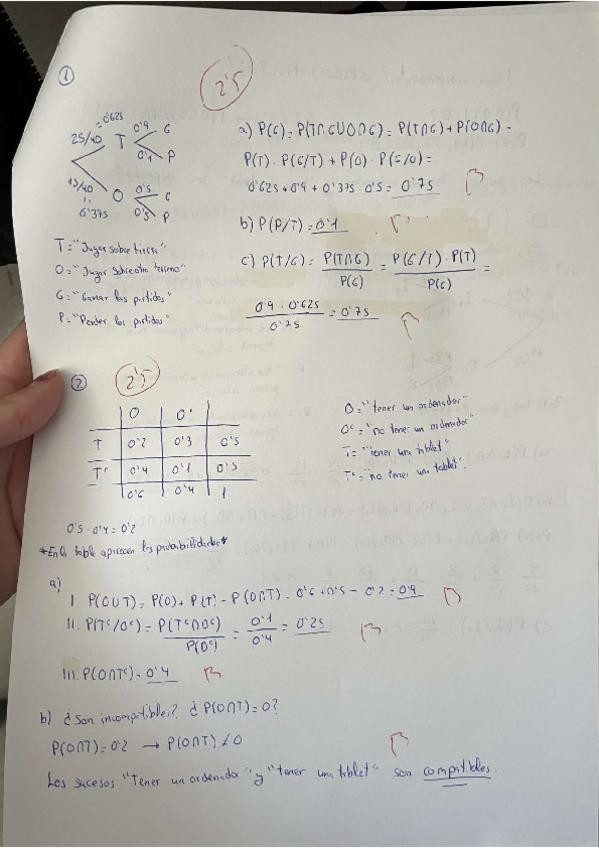 ①
2'5
0'625
25/40 T 0'9 G
0'1 P
15/40 O 0'5 G
0'375 0'5 P
T = "Jugar sobre tierra"
O = "Jugar sobre otro terreno"
G = "Ganar los partidos"
P = "Perder los partidos"
a) P(G) = P(T∩G∪O∩G) = P(T∩G) + P(O∩G) =
P(T) · P(G/T) + P(O) · P(G/O) =
0'625 · 0'9 + 0'375 · 0'5 = 0'75 B
b) P(P/T) = 0'1 B
c) P(T/G) = P(T∩G) / P(G) = P(G/T) · P(T) / P(G) =
0'9 · 0'625 / 0'75 = 0'75 B
②
2'5
O Oᶜ
T 0'2 0'3 0'5
Tᶜ 0'4 0'1 0'5
0'6 0'4 1
O = "tener un ordenador"
Oᶜ = "no tener un ordenador"
T = "tener una tablet"
Tᶜ = "no tener una tablet".
0'5 · 0'4 = 0'2
*En la tabla aparecen las probabilidades*
a)
I. P(O∪T) = P(O) + P(T) - P(O∩T) = 0'6 + 0'5 - 0'2 = 0'9 B
II. P(Tᶜ/Oᶜ) = P(Tᶜ∩Oᶜ) / P(Oᶜ) = 0'1 / 0'4 = 0'25 B
III. P(O∩Tᶜ) = 0'4 B
b) ¿Son incompatibles? ¿P(O∩T) = 0?
P(O∩T) = 0'2 → P(O∩T) ≠ 0 B
Los sucesos "Tener un ordenador" y "tener una tablet" son compatibles.